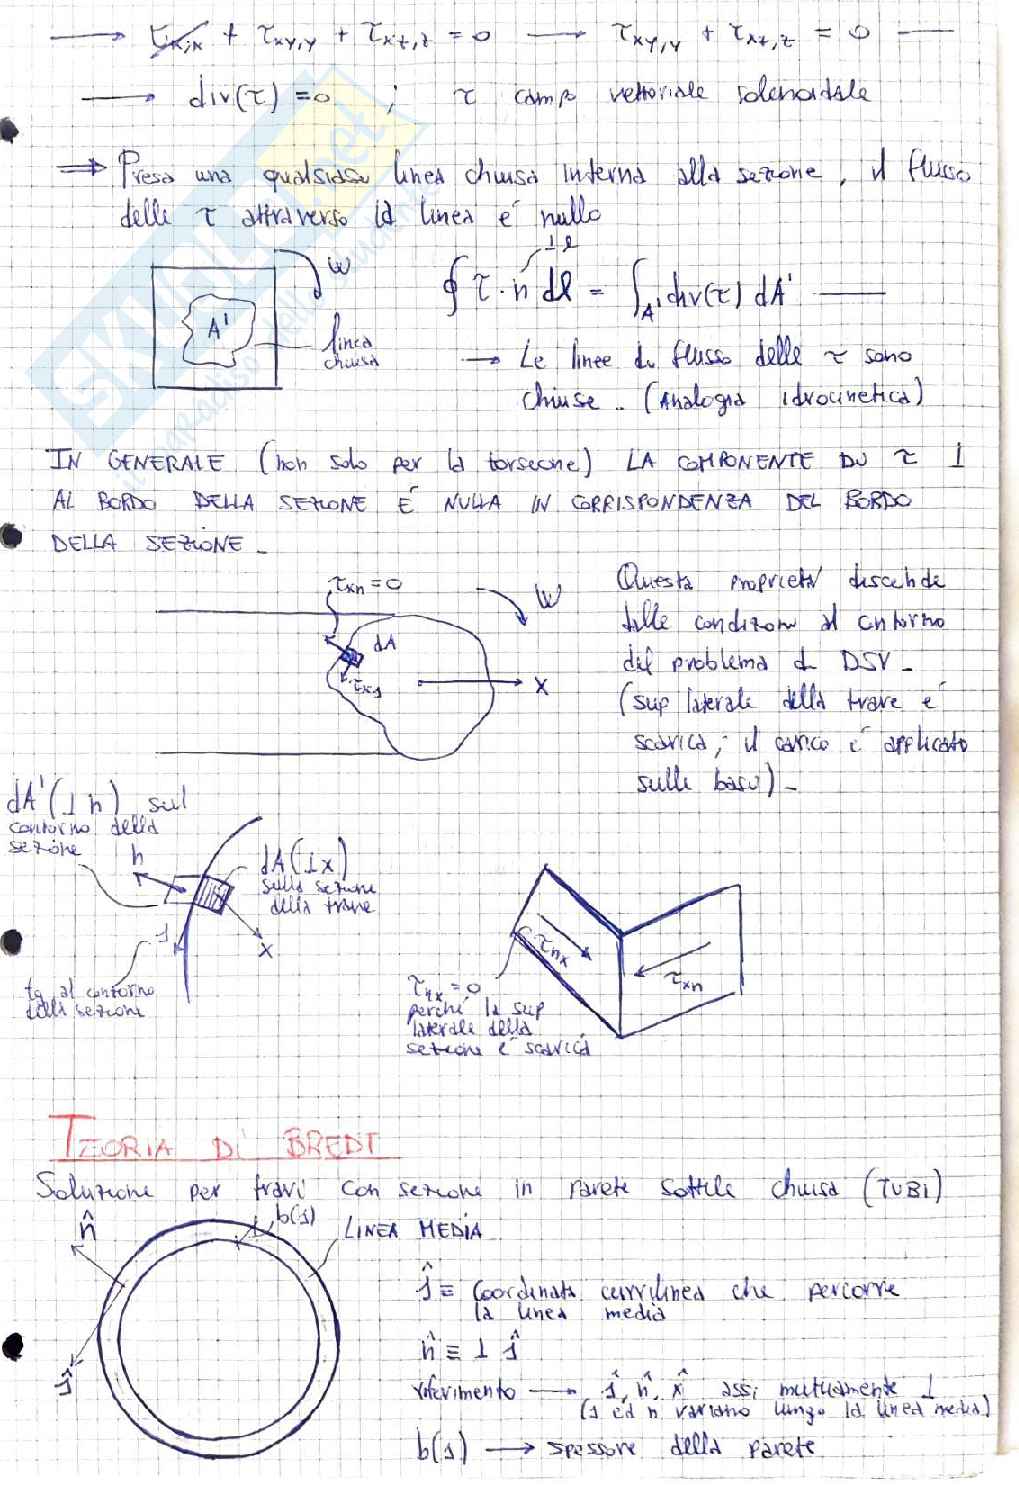 → τxx,x + τxy,y + τxz,z = 0 → τxy,y + τxz,z = 0 —
→ div(τ) = 0 ; τ campo vettoriale solenoidale
⇒ Presa una qualsiasi linea chiusa interna alla sezione, il flusso
delle τ attraverso la linea é nullo
⊥ l
∮ τ · n dl = ∫A' div(τ) dA' —
W
A'
linea
chiusa
→ Le linee di flusso delle τ sono
chiuse. (Analogia idrocinetica)
IN GENERALE (non solo per la torsione) LA COMPONENTE DI τ ⊥
AL BORDO DELLA SEZIONE É NULLA IN CORRISPONDENZA DEL BORDO
DELLA SEZIONE.
τxn = 0
W
dA
τxs
x
Questa proprietá discende
dalle condizioni al contorno
del problema di DSV.
(sup laterale della trave é
scarica; il carico é applicato
sulle basi).
dA'(⊥ n) sul
contorno della
sezione
n
dA(⊥x)
sulla sezione
della trave
s
x
tg al contorno
della sezione
τnx
τxn
τnx = 0
perché la sup
laterale della
sezione é scarica
TEORIA DI BREDT
Soluzione per travi con sezione in parete sottile chiusa (TUBI)
n̂
b(s)
LINEA MEDIA
ŝ
ŝ ≡ Coordinata curvilinea che percorre
la linea media
n̂ ≡ ⊥ ŝ
riferimento → ŝ, n̂, x̂ assi mutuamente ⊥
(s ed n variano lungo la linea media)
b(s) → spessore della parete
SKUOLA.net
il paradiso dello studente